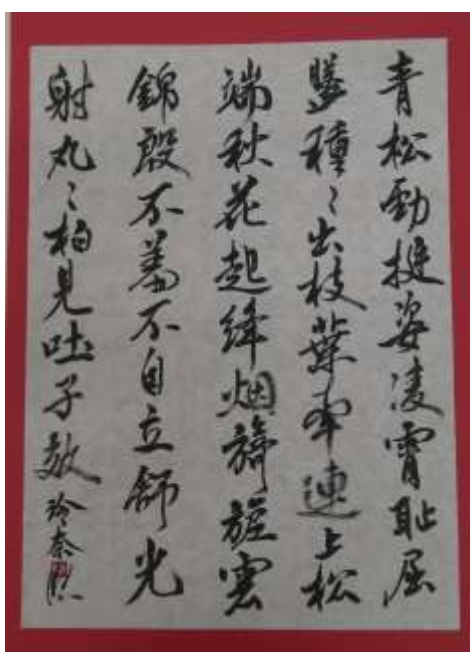 青松勁挺姿凌霄耻屈
盤種〻出枝葉牽連上松
端秋花起絳烟旖旎雲
錦殷不羞不自立舒光
射丸〻柏見吐子效玲奈